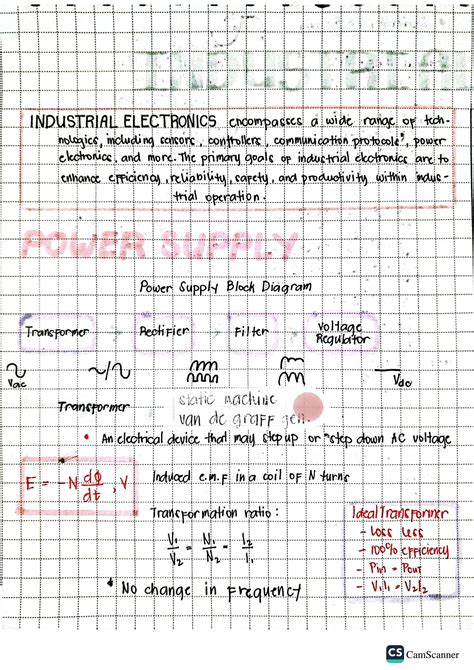 INDUSTRIAL
INDUSTRIAL ELECTRONICS encompasses a wide range of tech-
nologies, including sensors, controllers, communication protocols, power
electronics, and more. The primary goals of industrial electronics are to
enhance efficiency, reliability, safety, and productivity within indus-
trial operation.
POWER SUPPLY
Power Supply Block Diagram
Transformer Rectifier Filter Voltage
Regulator
Vac Vdc
static machine
Transformer van de graff gen.
• An electrical device that may step up or step down AC voltage
E = -N dφ/dt, V Induced e.m.f in a coil of N turns
Transformation ratio:
V1/V2 = N1/N2 = I2/I1
* No change in frequency
Ideal Transformer
- Loss less
- 100% efficiency
- Pin = Pout
- V1I1 = V2I2
CS CamScanner